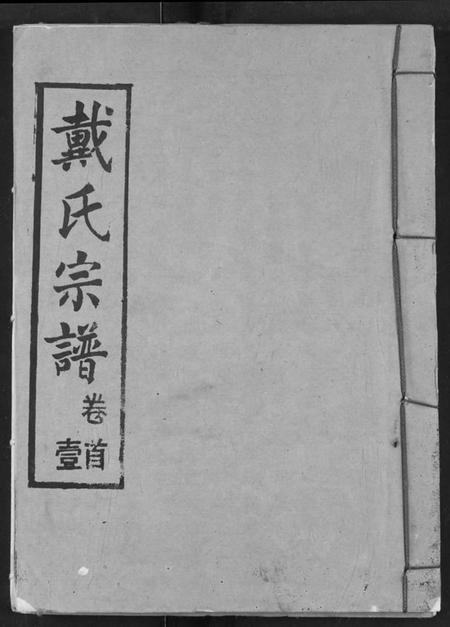 戴氏宗譜
卷首壹